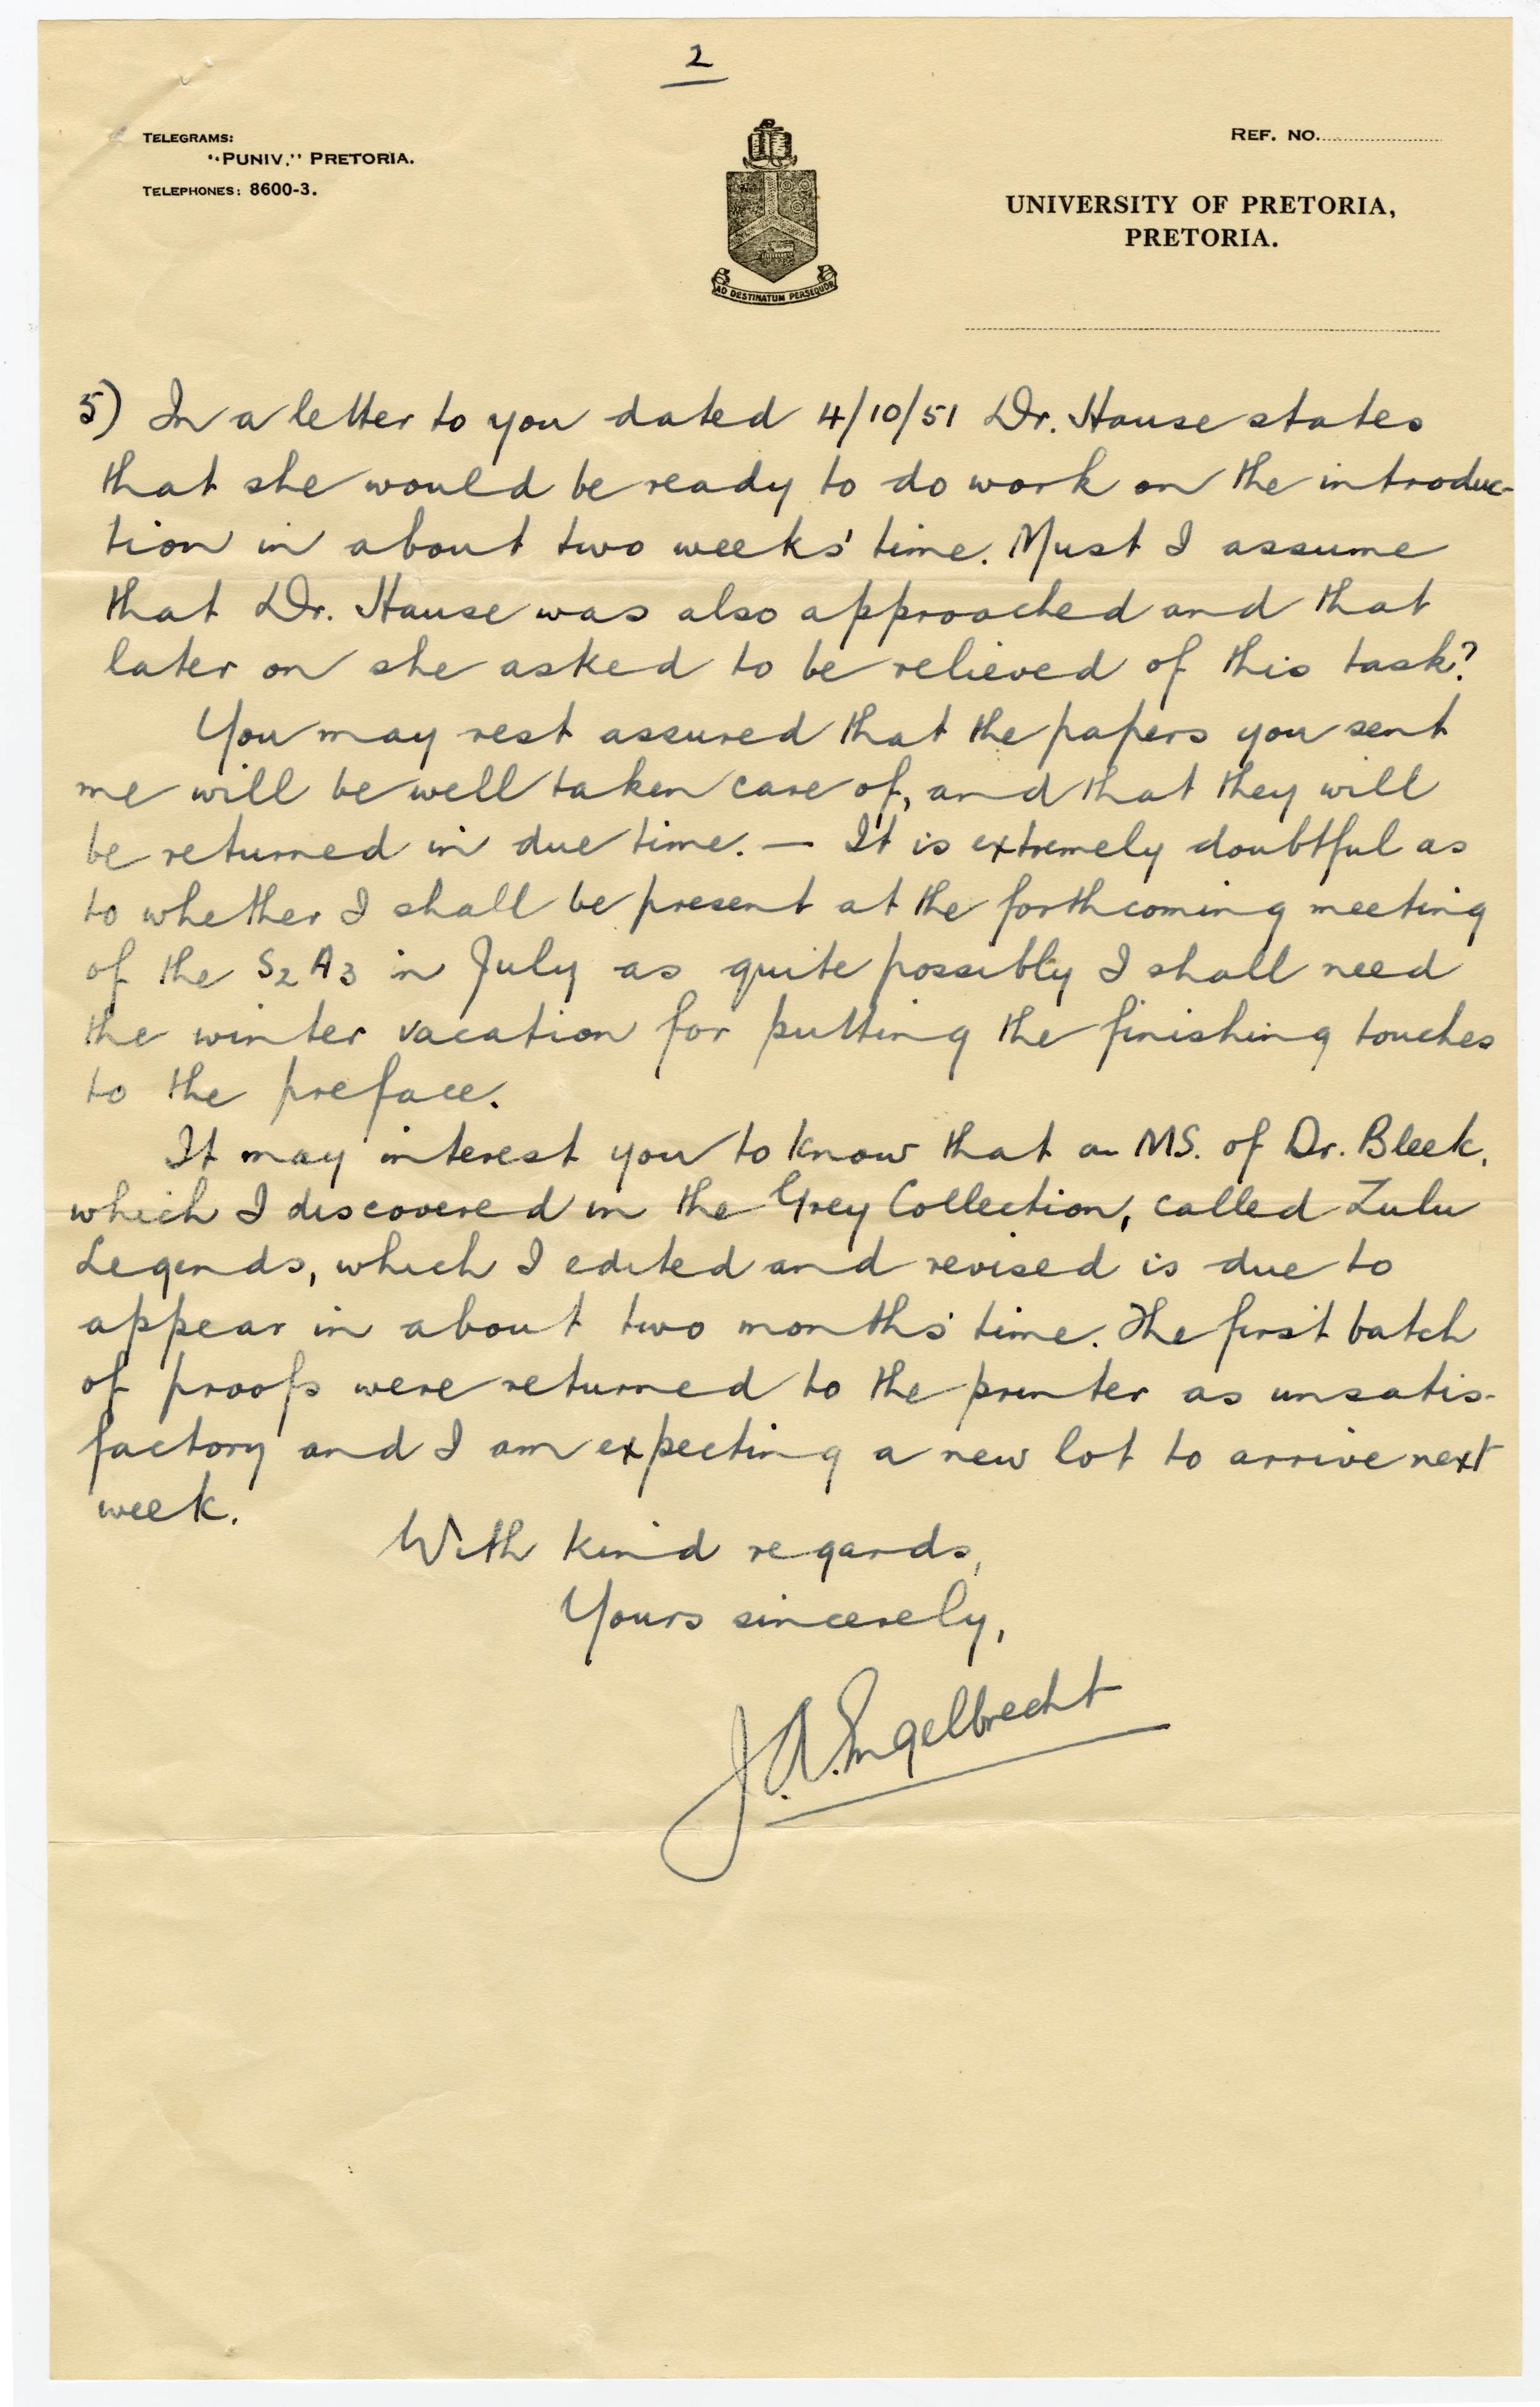 2
TELEGRAMS:
"PUNIV." PRETORIA.
TELEPHONES: 8600-3.
AD DESTINATUM PERSEQUOR
REF. NO.
UNIVERSITY OF PRETORIA,
PRETORIA.
5) In a letter to you dated 4/10/51 Dr. Hause states
that she would be ready to do work on the introduc-
tion in about two weeks' time. Must I assume
that Dr. Hause was also approached and that
later on she asked to be relieved of this task?
You may rest assured that the papers you sent
me will be well taken care of, and that they will
be returned in due time. — It is extremely doubtful as
to whether I shall be present at the forthcoming meeting
of the S2A3 in July as quite possibly I shall need
the winter vacation for putting the finishing touches
to the preface.
It may interest you to know that a MS. of Dr. Bleek,
which I discovered in the Grey Collection, called Zulu
Legends, which I edited and revised is due to
appear in about two months' time. The first batch
of proofs were returned to the printer as unsatis-
factory and I am expecting a new lot to arrive next
week.
With kind regards,
Yours sincerely,
J.A. Engelbrecht